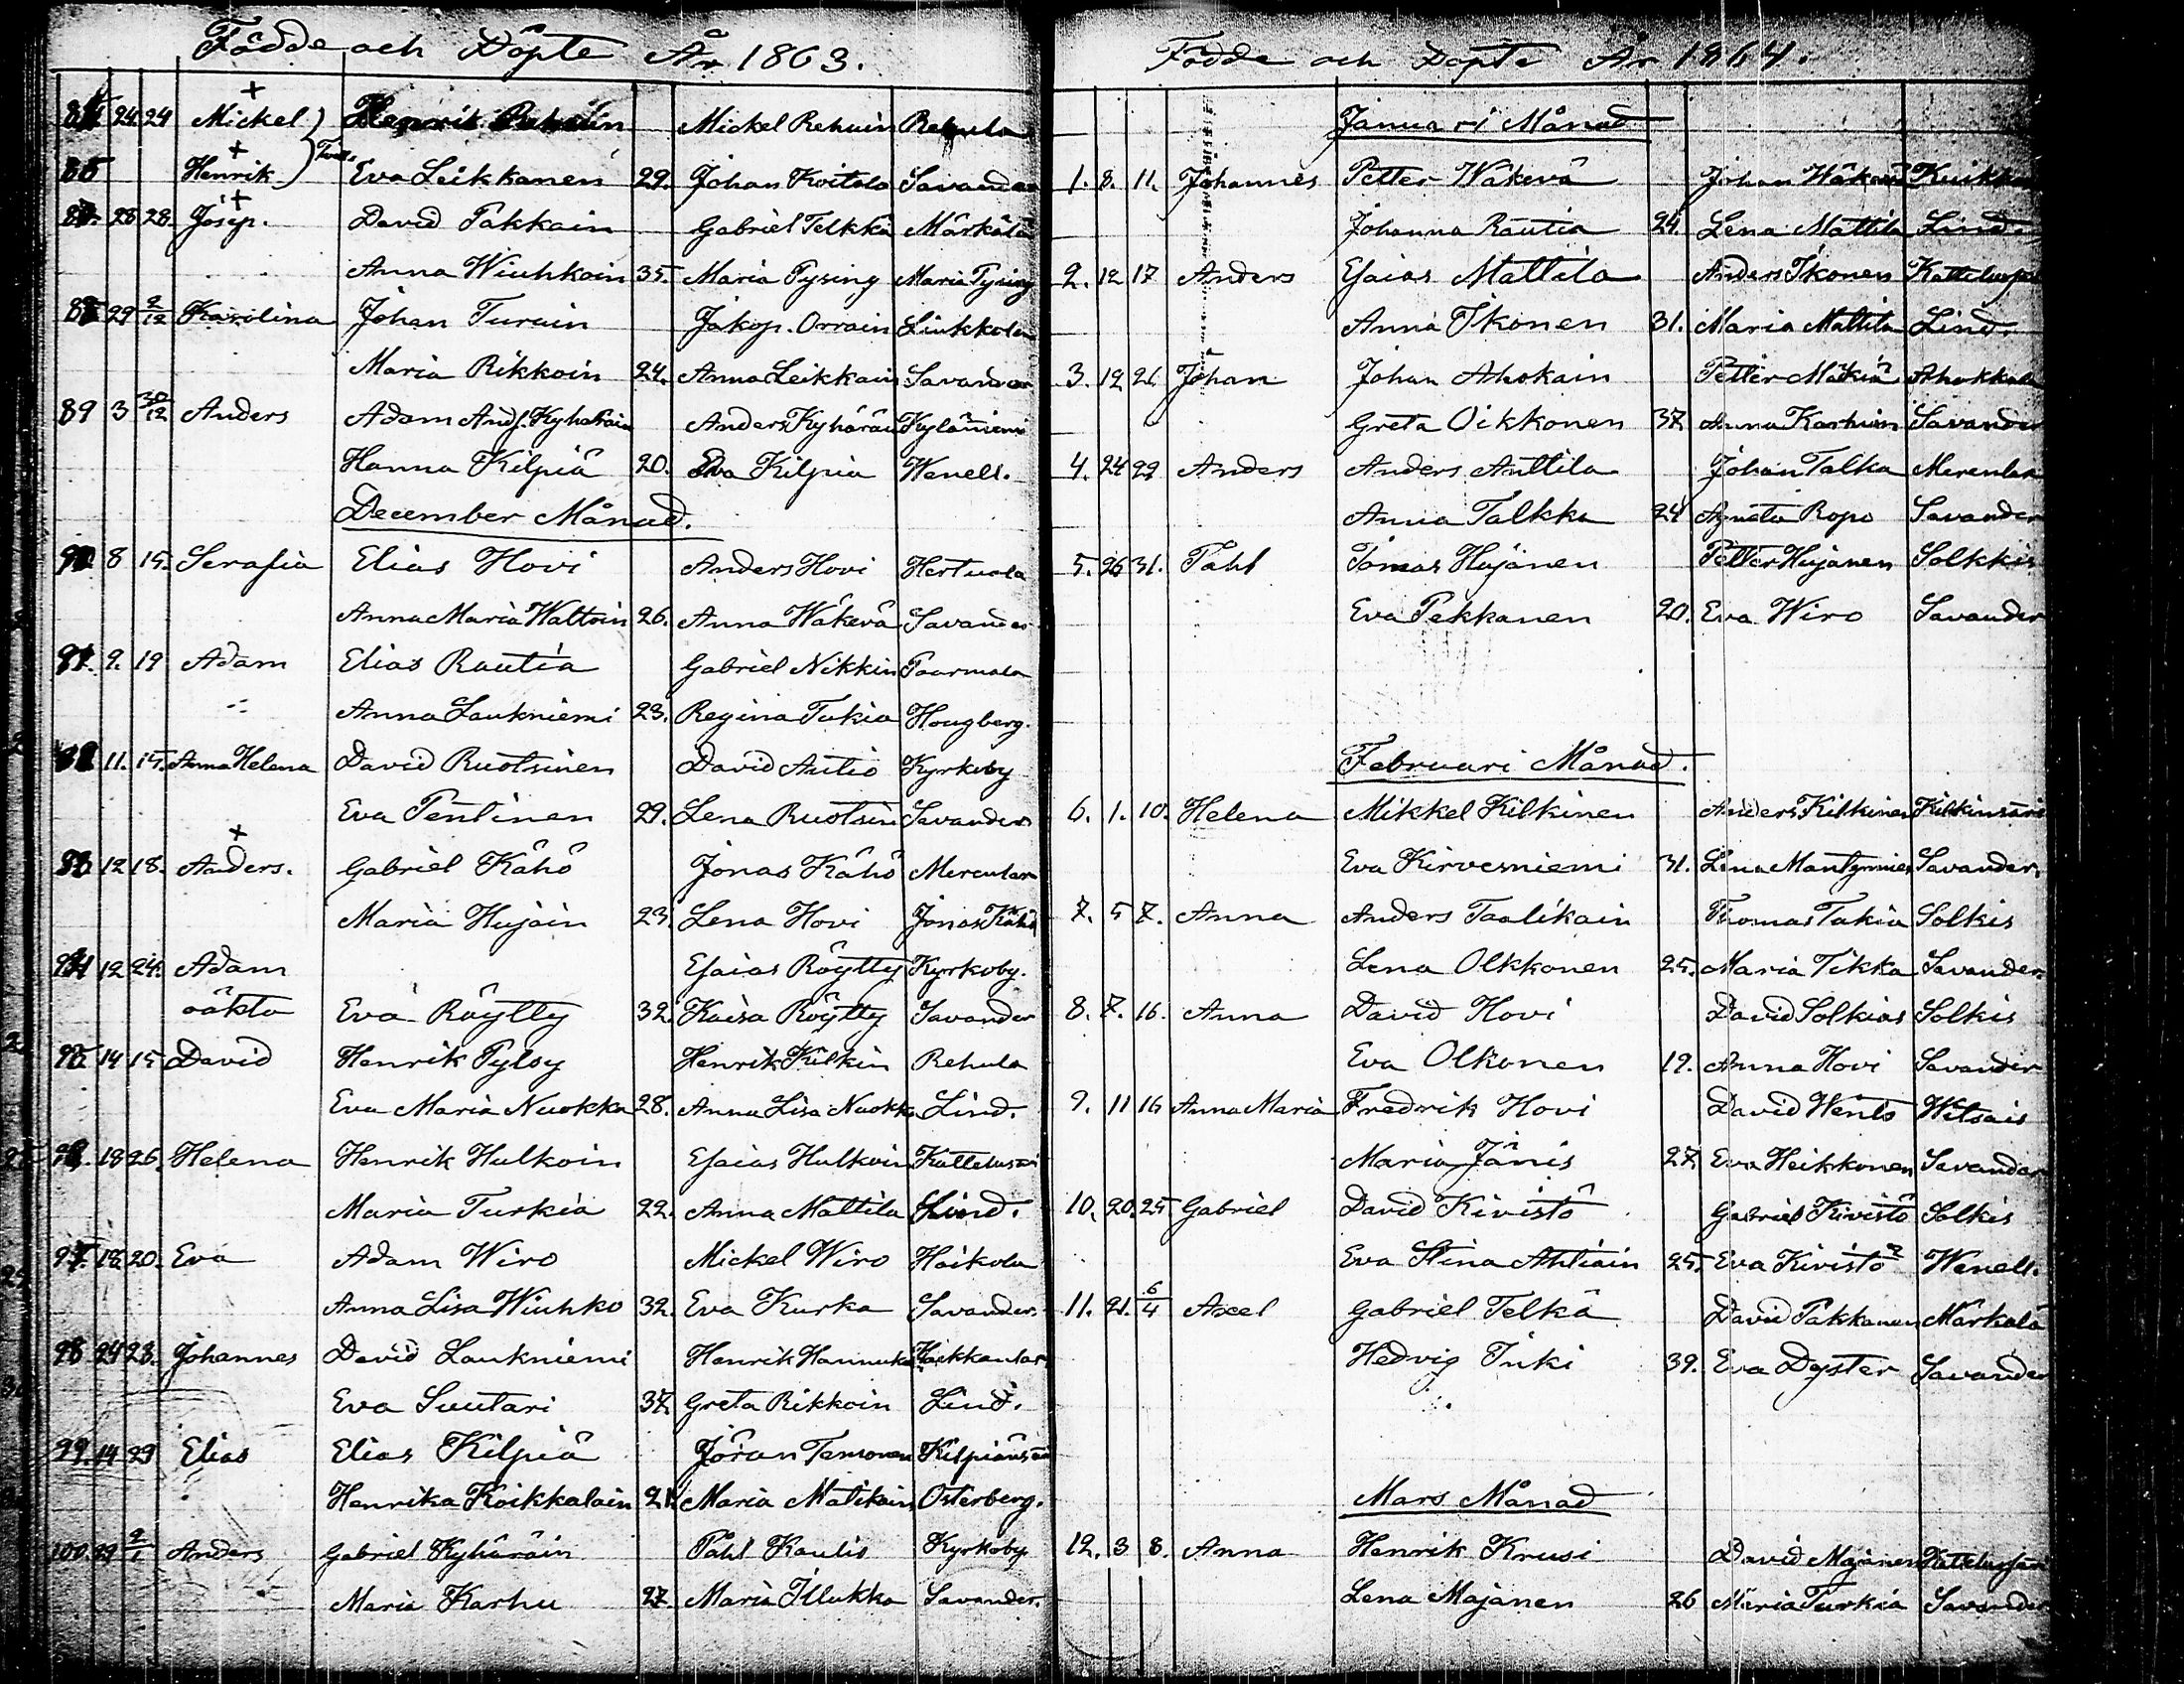 Födde och Döpte År 1863.
24 24 Mickel Henrik Mickel Rehuin Rehula
Henrik Tvill. Eva Leikkanen 29. Johan Koitola Savander
28 28. Josep. David Pakkain Gabriel Telkkä Märkälä
Anna Wiuhkoin 35. Maria Tysing Maria Tysing
29 2/12 Karolina Johan Turuin Jakop. Orrain Liukkola
Maria Rikkoin 24. Anna Leikkain Savander
89 3 30/12 Anders Adam Kyhäräin Anders Kyhäräin Kyläniemi
Hanna Kilpiä 20. Eva Kilpia Wenell.
December Månad.
90. 8 15. Serafia Elias Hovi Anders Hovi Hertuala
Anna Maria Waltoin 26. Anna Wäkevä Savander
91. 9. 19 Adam Elias Rautia Gabriel Nikkin Paurmala
Anna Laukniemi 23. Regina Tukia Hougberg.
92 11. 15. Anna Helena David Ruotsinen David Autio Kyrkoby
Eva Pentinen 29. Lena Ruotsin Savander
93 12 18. Anders. Gabriel Kähö Jonas Kähö Merenlar
Maria Hujain 23. Lena Hovi Jonas Kähö
94 12 24. Adam Esaias Röytty Kyrkoby.
oäkta Eva Röytty 32. Kaisa Röytty Savander
95 14 15 David Henrik Pylsy Henrik Kilkin Rehula
Eva Maria Nuokka 28. Anna Lisa Nuokka Lind.
96. 18 26. Helena Henrik Hulkoin Esaias Hulkoin
Maria Turkia 22. Anna Mattila Lind.
97. 18 20. Eva Adam Wiro Mickel Wiro Haikola
Anna Lisa Wiuhko 32. Eva Kurka Savander.
98 24 28. Johannes David Laukniemi Henrik Hannuka
Eva Suutari 37. Greta Rikkoin Lind.
99. 14 29 Elias Elias Kilpiä Jöran Tensonen Kilpiäns
Henrika Koikkalain 21. Maria Matikain Österberg.
100. 29 2/1 Anders Gabriel Kyhäräin Påhl Kaulio Kyrkoby
Maria Karhu 27. Maria Illukka Savander.
Födde och Döpte År 1864.
Januari Månad
1. 8. 11. Johannes Petter Wäkevä Johan Wäkevä
Johanna Rautia 24. Lena Mattila Lind.
2. 12 17 Anders Esaias Mattila Anders Ikonen
Anna Ikonen 31. Maria Mattila Lind.
3. 12 21 Johan Johan Ahokain Petter Mäkiä Ahokkala
Greta Oikkonen 37 Anna Karhuin Savander
4. 24 29 Anders Anders Anttila Johan Talka Merenlar
Anna Talkka 24 Agneta Ropo Savander
5. 26 31. Påhl Tomas Hujanen Petter Hujanen Solkkis
Eva Pekkanen 20. Eva Wiro Savander
Februari Månad.
6. 1. 10. Helena Mikkel Kilkinen Anders Kilkinen Kilkinsari
Eva Kirvesniemi 31. Lena Mantymies Savander.
7. 5 7. Anna Anders Taalikain Thomas Takia Solkis
Lena Olkkonen 25. Maria Tikka Savander.
8. 7. 16. Anna David Hovi David Solkias Solkis
Eva Olkonen 19. Anna Hovi Savander
9. 11 16 Anna Maria Fredrik Hovi David Wento Witsais
Maria Jänis 27. Eva Heikkonen Savander
10. 20. 25 Gabriel David Kivistö Gabriel Kivistö Solkis
Eva Stina Ahtiain 25. Eva Kivistö Wenell.
11. 21. 6/4 Axel Gabriel Telkä David Pakkanen Märkälä
Hedvig Inki 39. Eva Dyster Savander
Mars Månad
12. 3 8. Anna Henrik Krusi David Majanen
Lena Majanen 26 Maria Turkia Savander